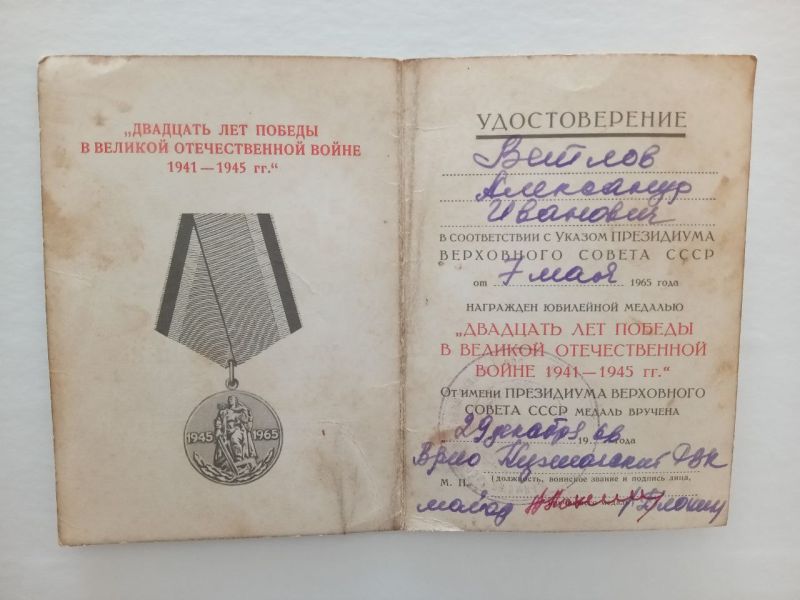 „ДВАДЦАТЬ ЛЕТ ПОБЕДЫ
В ВЕЛИКОЙ ОТЕЧЕСТВЕННОЙ ВОЙНЕ
1941—1945 гг.“
1945 1965
УДОСТОВЕРЕНИЕ
Ветлов
Александр
Иванович
В СООТВЕТСТВИИ С УКАЗОМ ПРЕЗИДИУМА
ВЕРХОВНОГО СОВЕТА СССР
от 7 мая 1965 года
НАГРАЖДЕН ЮБИЛЕЙНОЙ МЕДАЛЬЮ
„ДВАДЦАТЬ ЛЕТ ПОБЕДЫ
В ВЕЛИКОЙ ОТЕЧЕСТВЕННОЙ
ВОЙНЕ 1941—1945 гг.“
ОТ ИМЕНИ ПРЕЗИДИУМА ВЕРХОВНОГО
СОВЕТА СССР МЕДАЛЬ ВРУЧЕНА
29 декабря 19 года
Врио
М. П. (должность, воинское звание и подпись лица,